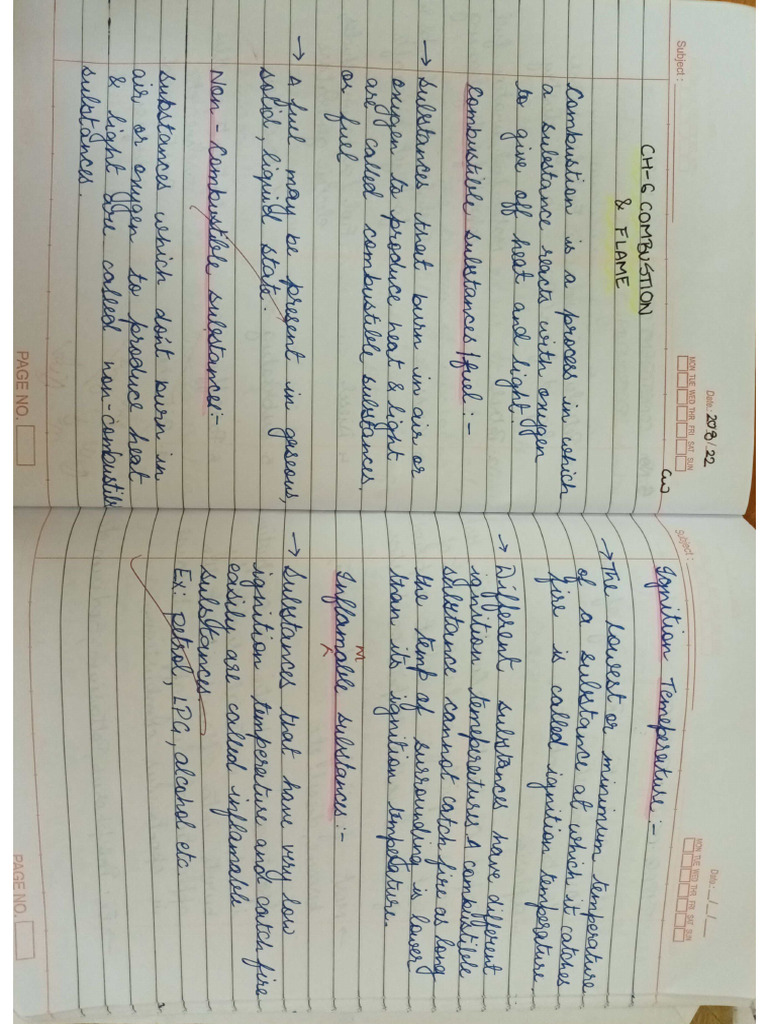 Subject:
Date: 20/8/22
MON TUE WED THR FRI SAT SUN
CW
CH-6 COMBUSTION
& FLAME
Combustion is a process in which
a substance reacts with oxygen
to give off heat and light.
Combustible substances/fuel:-
→ Substances that burn in air or
oxygen to produce heat & light
are called combustible substances.
or fuel
→ A fuel may be present in gaseous,
solid, liquid state.
Non-Combustible substances:-
substances which don't burn in
air or oxygen to produce heat
& light are called non-combustible
substances.
PAGE NO.
Subject:
Date: __/__/__
MON TUE WED THR FRI SAT SUN
Ignition Temeperature:-
→ The lowest or minimum temperature
of a substance at which it catches
fire is called ignition temperature
→ Different substances have different
ignition temeperatures A combustible
substance cannot catch fire as long
the temp of surrounding is lower
than its ignition temperature.
M
Inflamable substances:-
→ Substances that have very low
ignition temperature and catch fire
easily are called inflamable
substances
Ex: petrol, LPG, alcohol etc.
PAGE NO.